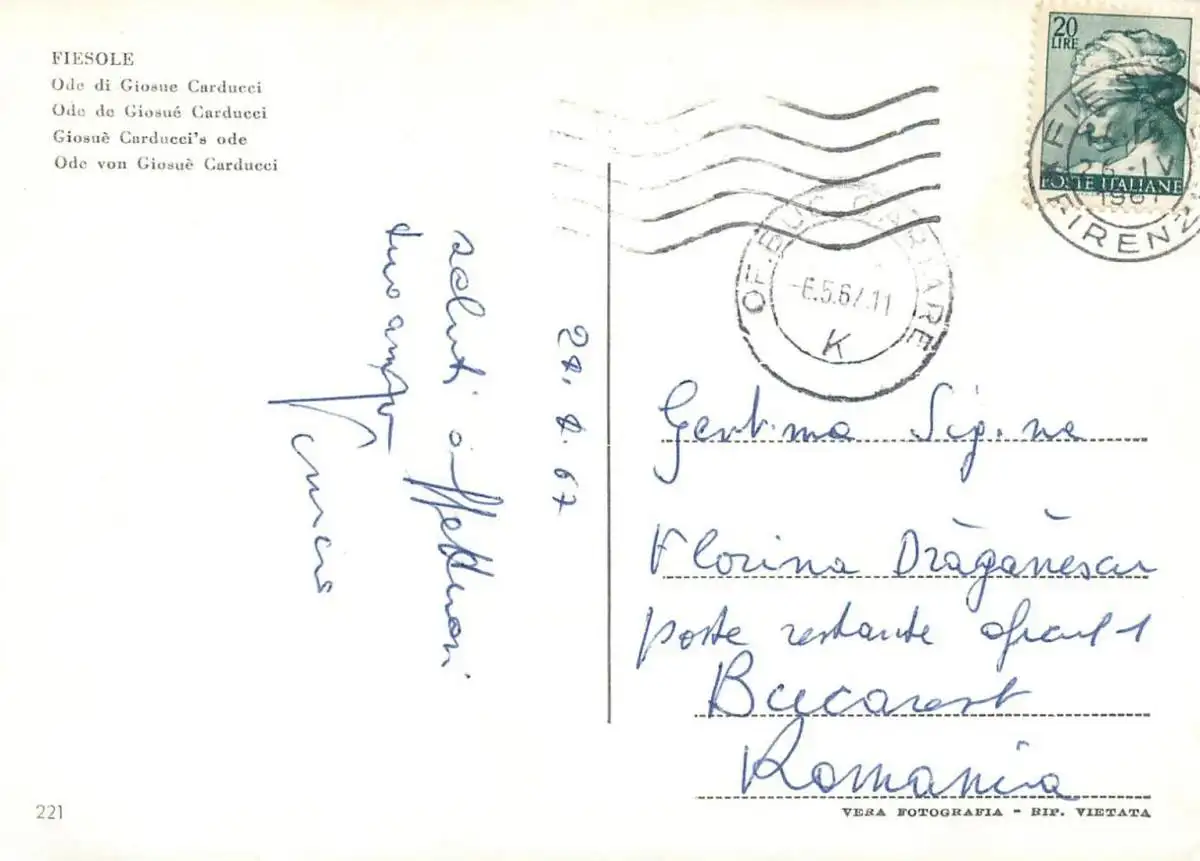 FIESOLE
Ode di Giosue Carducci
Ode de Giosué Carducci
Giosuè Carducci's ode
Ode von Giosuè Carducci
20
LIRE
POSTE ITALIANE
FIRENZ
26-IV
1967
OF. BUC CARTARE
-6.5.67.11
K
24.4.67
saluti affettuosi
tuo
Gent.ma Sig.na
Florina Drăgănescu
poste restante oficiul 1
Bucarest
Romania
221
VERA FOTOGRAFIA - RIP. VIETATA